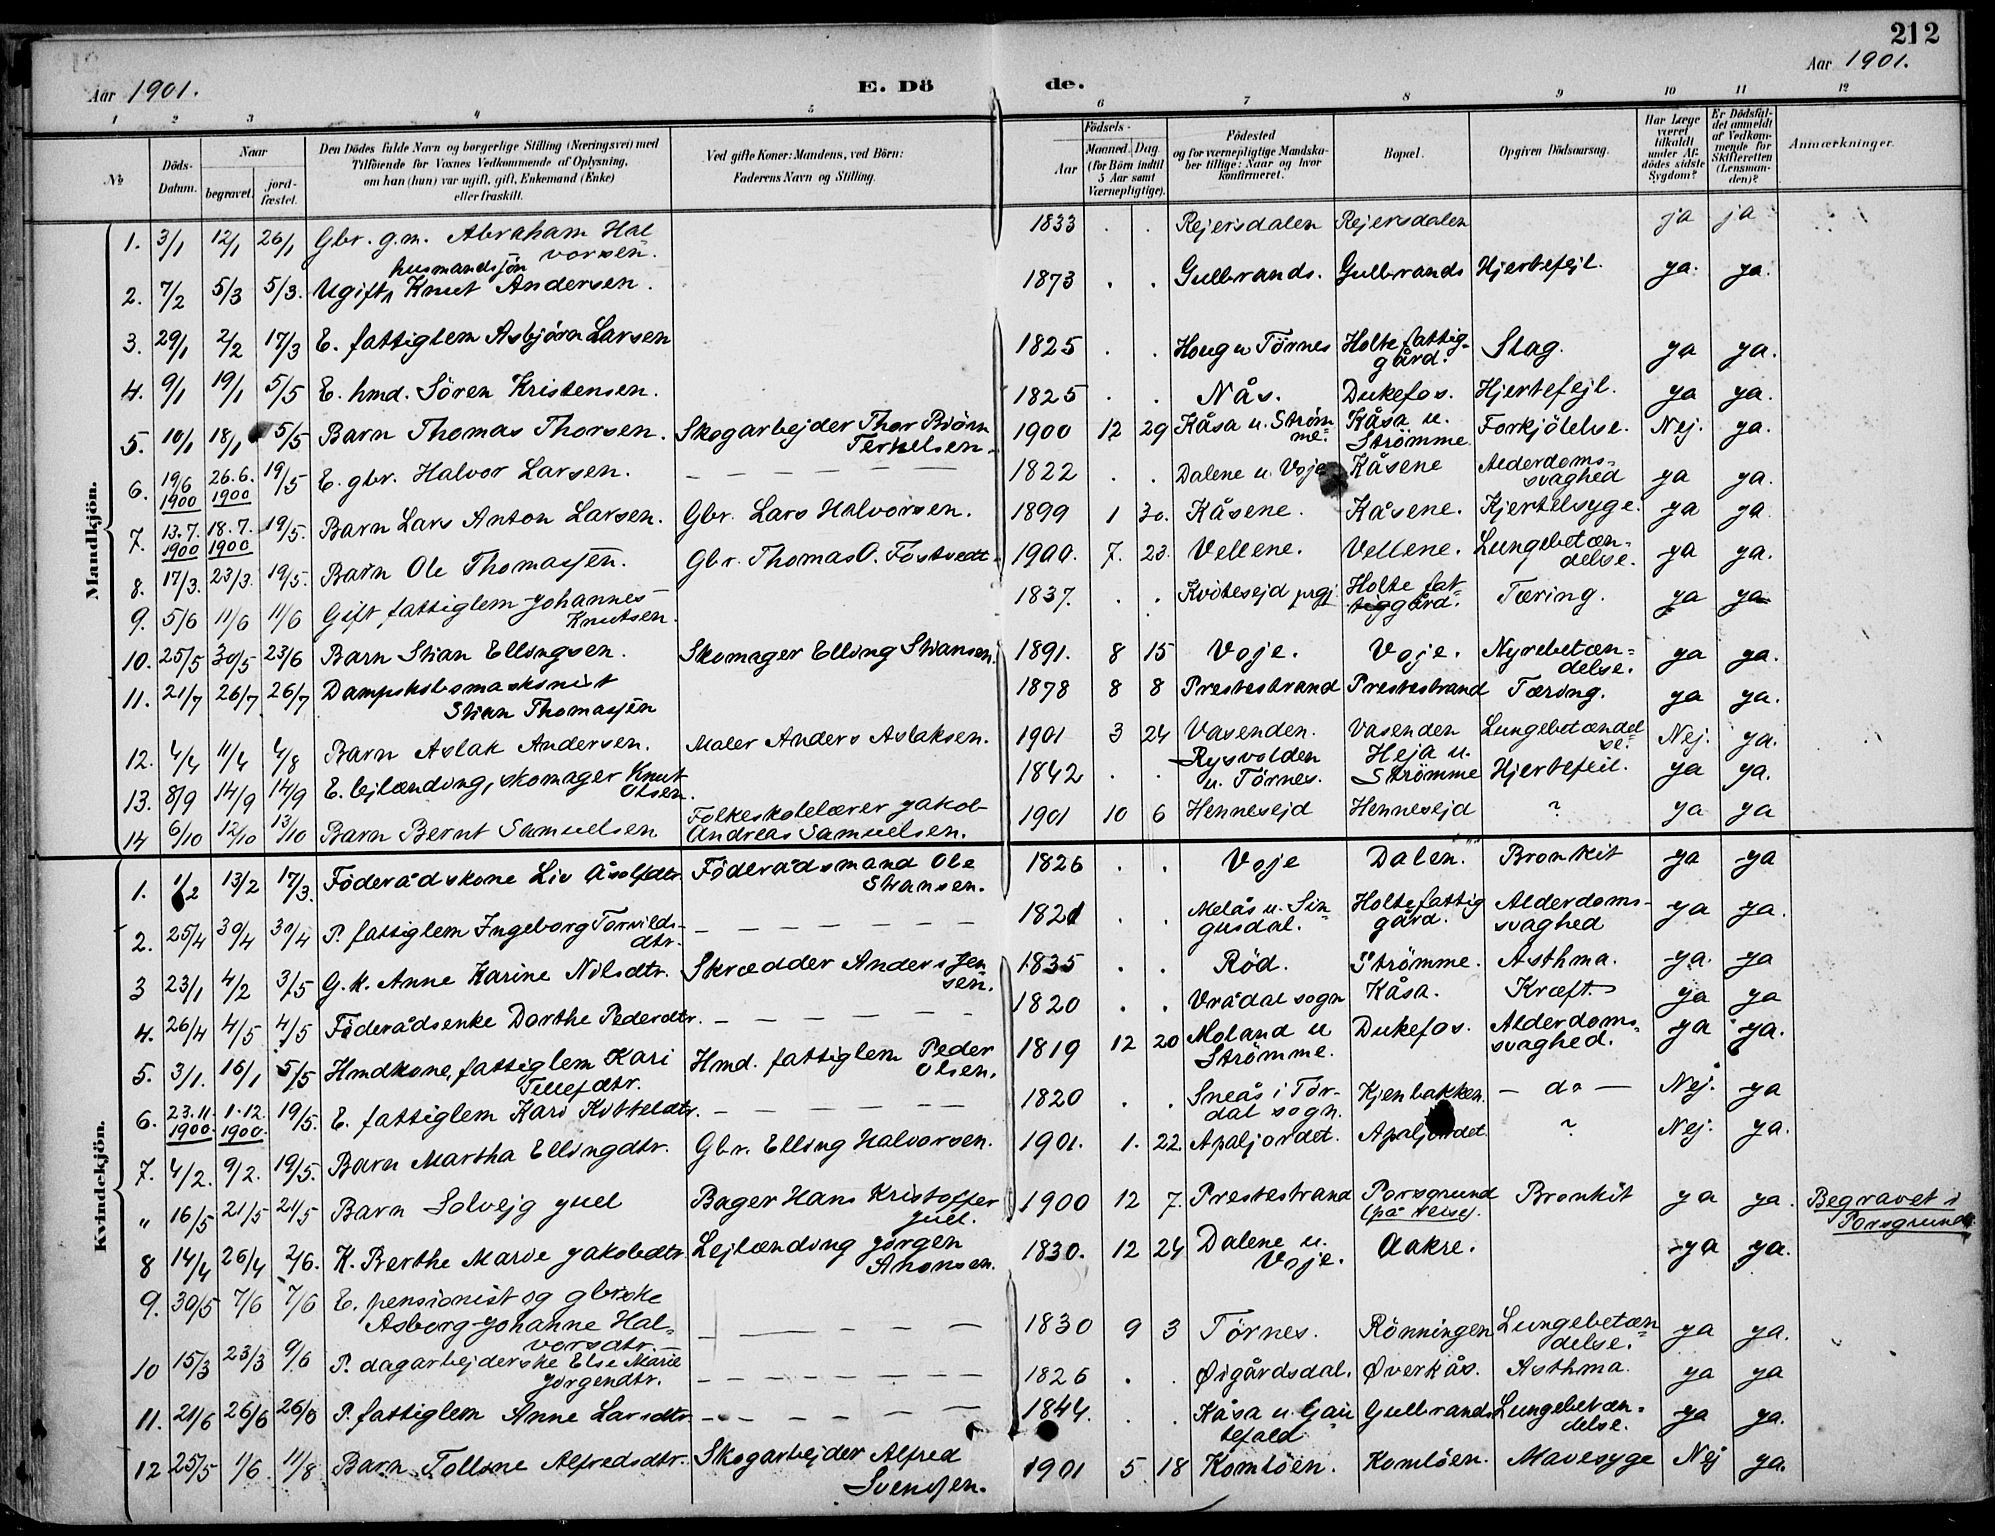 212
Aar 1901.
E. Dö
de.
Aar 1901.
1 2 3 4 5 6 7 8 9 10 11 12
№
Döds-Datum.
Naar
begravet.
jord-fæstet.
Den Dödes fulde Navn og borgerlige Stilling (Næringsvei) med
Tilföiende for Voxnes Vedkommende af Oplysning,
om han (hun) var ugift, gift, Enkemand (Enke)
eller fraskilt.
Ved gifte Koner: Mandens, ved Börn:
Faderens Navn og Stilling.
Födsels-
Aar
Maaned. Dag.
(for Börn indtil
5 Aar samt
Værnepligtige).
Födested
og for værnepligtige Mandska-
ber tillige: Naar og hvor
konfirmeret.
Bopæl.
Opgiven Dödsaarsag.
Har Læge
været
tilkaldt
under Af-
dödes sidste
Sygdom?
Er Dödsfal-
det anmeldt
af Vedkom-
mende for
Skifteretten
(Lensman-
den)?
Anmærkninger.
Mandkjön.
1. 3/1 12/1 26/1 Gbr. g.m. Abraham Hal
vorsen. 1833 . . Rejersdalen Rejersdalen ja ja
husmandssön
2. 7/2 5/3 5/3. Ugift Knut Andersen. 1873 . . Gulbrands. Gulbrands Hjertefejl. ja. ja.
3. 29/1 2/2 17/3 E. fattiglem Asbjörn Larsen 1825 . . Houg u Törnes Holte fattig-
gård. Slag. ja ja.
4. 9/1 19/1 5/5 E. hmd. Sören Kristensen. 1825 . . Nås. Dukefos. Hjertefejl. ja ja.
5. 10/1 18/1 5/5 Barn Thomas Thorsen. Skogarbejder Thor Björn
Terkelsen. 1900 12 29 Kåsa u. Ström
me. Kåsa u.
Strömme Forkjölelse. Nej. ja.
6. 19/6 1900 26.6. 1900 19/5 E. gbr. Halvor Larsen. — — — 1822 . . Dalene u. Voje Kåsene Alderdoms-
svaghed ja ja.
7. 13.7. 1900 18.7. 1900 19/5. Barn Lars Anton Larsen. Gbr. Lars Halvorsen. 1899 1 30. Kåsene. Kåsene. Kjertelsyge. ja ja.
8. 17/3. 23/3. 19/5. Barn Ole Thomassen. Gbr. Thomas O. Föstvedt. 1900. 7. 23. Vellene. Vellene. Lungebetæn-
delse. ja ja.
9. 5/6 11/6 11/6 Gift fattiglem Johannes
Knutsen. 1837. . . Kvitesejd prgj. Holte fat-
tiggård. Tæring. ja ja
10. 25/5 30/5 23/6 Barn Stian Ellingsen. Skomager Elling Stiansen. 1891. 8 15 Voje. Voje. Nyrebetæn-
delse. ja ja.
11. 21/7 26/7 26/7 Dampskibsmaskinist
Stian Thomassen 1878 8 8 Prestestrand Prestestrand Tæring. ja ja.
12. 4/4 11/4 4/8 Barn Aslak Andersen. Maler Anders Aslaksen. 1901 3 24 Vasenden. Vasenden Lungebetændel
se. Nej. ja.
13. 8/9 14/9 14/9 E. lejlænding, skomager Knut
Olsen. 1842 . . Rysvolden
u. Törnes. Heja u.
Strömme Hjertefeil. ja ja.
14 6/10 12/10 13/10 Barn Bernt Samuelsen Folkeskolelærer Jakob
Andreas Samuelsen. 1901 10 6 Hennesejd Hennesejd ? ja ja
Kvindekjön.
1. 1/2 13/2 17/3. Föderådskone Liv Åsolfdtr. Föderådsmand Ole
Stiansen. 1826 . . Voje Dalen. Bronkit ja ja
2. 25/4 30/4 30/4 P. fattiglem Ingeborg Torvilds-
dtr. — — — 1821 . . Melås u. Sin
gusdal. Holte fattig
gård. Alderdoms-
svaghed ja ja.
3 23/1 4/2 3/5 G.k. Anne Karine Nilsdtr. Skrædder Anders Jen
sen. 1835 . . Röd. Strömme. Asthma. ja. ja
4. 26/4 4/5 4/5 Föderådsenke Dorthe Pedersdtr. — — — 1820 . . Vrådal sogn Kåsa. Kræft. ja ja
5. 3/1. 16/1 5/5 Hmdkone, fattiglem Kari
Tellefdtr. Hmd. fattiglem Peder
Olsen. 1819 12 20 Moland u
Strömme. Dukefos. Alderdoms-
svaghed. ja ja.
6. 23.11. 1900. 1.12. 1900. 19/5. E. fattiglem Kari Kitteldtr. — — — 1820 . . Sneås i Tör-
dal sogn. Kjenbakken. — do — Nej. ja
7. 4/2. 9/2. 19/5. Barn Martha Ellingdtr. Gbr. Elling Halvorsen. 1901. 1. 22. Apaljordet. Apaljordet ? Nej. ja.
" 16/5 21/5 21/5 Barn Solvejg Juel Bager Hans Kristoffer
Juel. 1900 12 7. Prestestrand Porsgrund
(på reise). Bronkit ja ja. Begravet i
Porsgrund.
8 14/4 26/4 2/6. K. Berthe Marie Jakobdtr. Lejlænding Jörgen
Anonsen. 1830. 12 24 Dalene u.
Voje. Aakre. ja ja.
9. 30/5 7/6 7/6 E. pensionist og gbrske
Asborg Johanne Hal-
vorsdtr. — — — 1830 9 3 Törnes. Rönningen Lungebetæn
delse. ja ja.
10 15/3 23/3 9/6 P. dagarbejderske Else Marie
Jörgendtr. — — — 1826 . . Øigårdsdal. Øverkås. Asthma. ja ja
11. 21/6 26/6 26/6 P. fattiglem Anne Larsdtr. — — — 1844. . . Kåsa u. Gau
tefald Gulbrands Lungebetæn-
delse. ja ja.
12 25/5 1/6. 11/8 Barn Tolline Alfredsdtr. Skogarbejder Alfred
Svendsen. 1901 5 18 Komlöen. Komlöen. Mavesyge Nej ja.